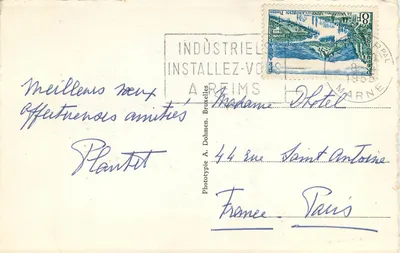 INDUSTRIELS
INSTALLEZ-VOUS
A REIMS
MARNE
Meilleurs vœux
affectueuses amitiés
Plantet
Phototypie A. Dohmen, Bruxelles
Madame Dhotel
44 rue Saint Antoine
France - Paris